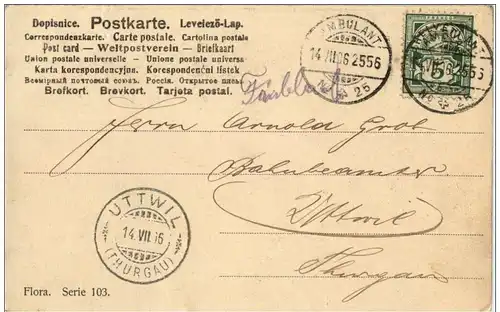 Dopisnice. Postkarte. Levelező-Lap.
Correspondenzkarte. Carte postale. Cartolina postale
Post card — Weltpostverein — Briefkaart
Union postale universelle — Unione postale universa
Karta korespondencyjna. Korespondenční lístek
Всемірный почтовый союзъ. Россія. Открытое письмо
Brefkort. Brevkort. Tarjeta postal.
AMBULANT
14.VII.06 2556
No 25
AMBULANT
06 2556
No
5
Herrn Arnold Grob
Bahnbeamter
Uttwil
Thurgau
UTTWIL
14.VII.06
(THURGAU)
Flora. Serie 103.